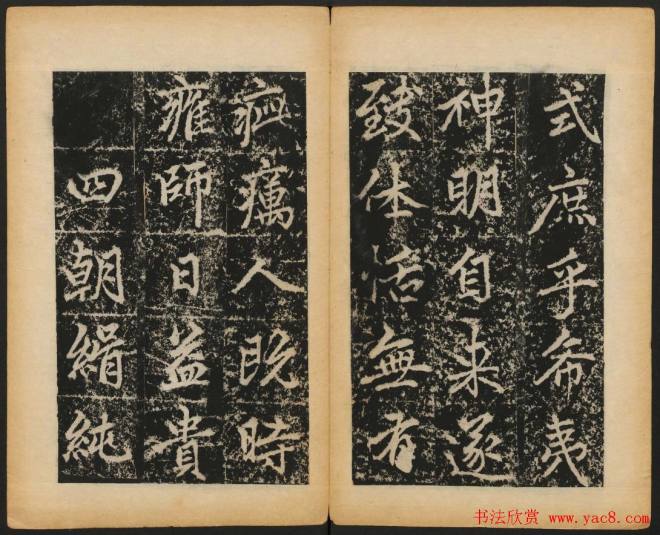 式庶乎希夷
神明自来遂
致休無有
疵癘人既時
雍師日益貴
四朝緝純
书法欣赏 www.yac8.com